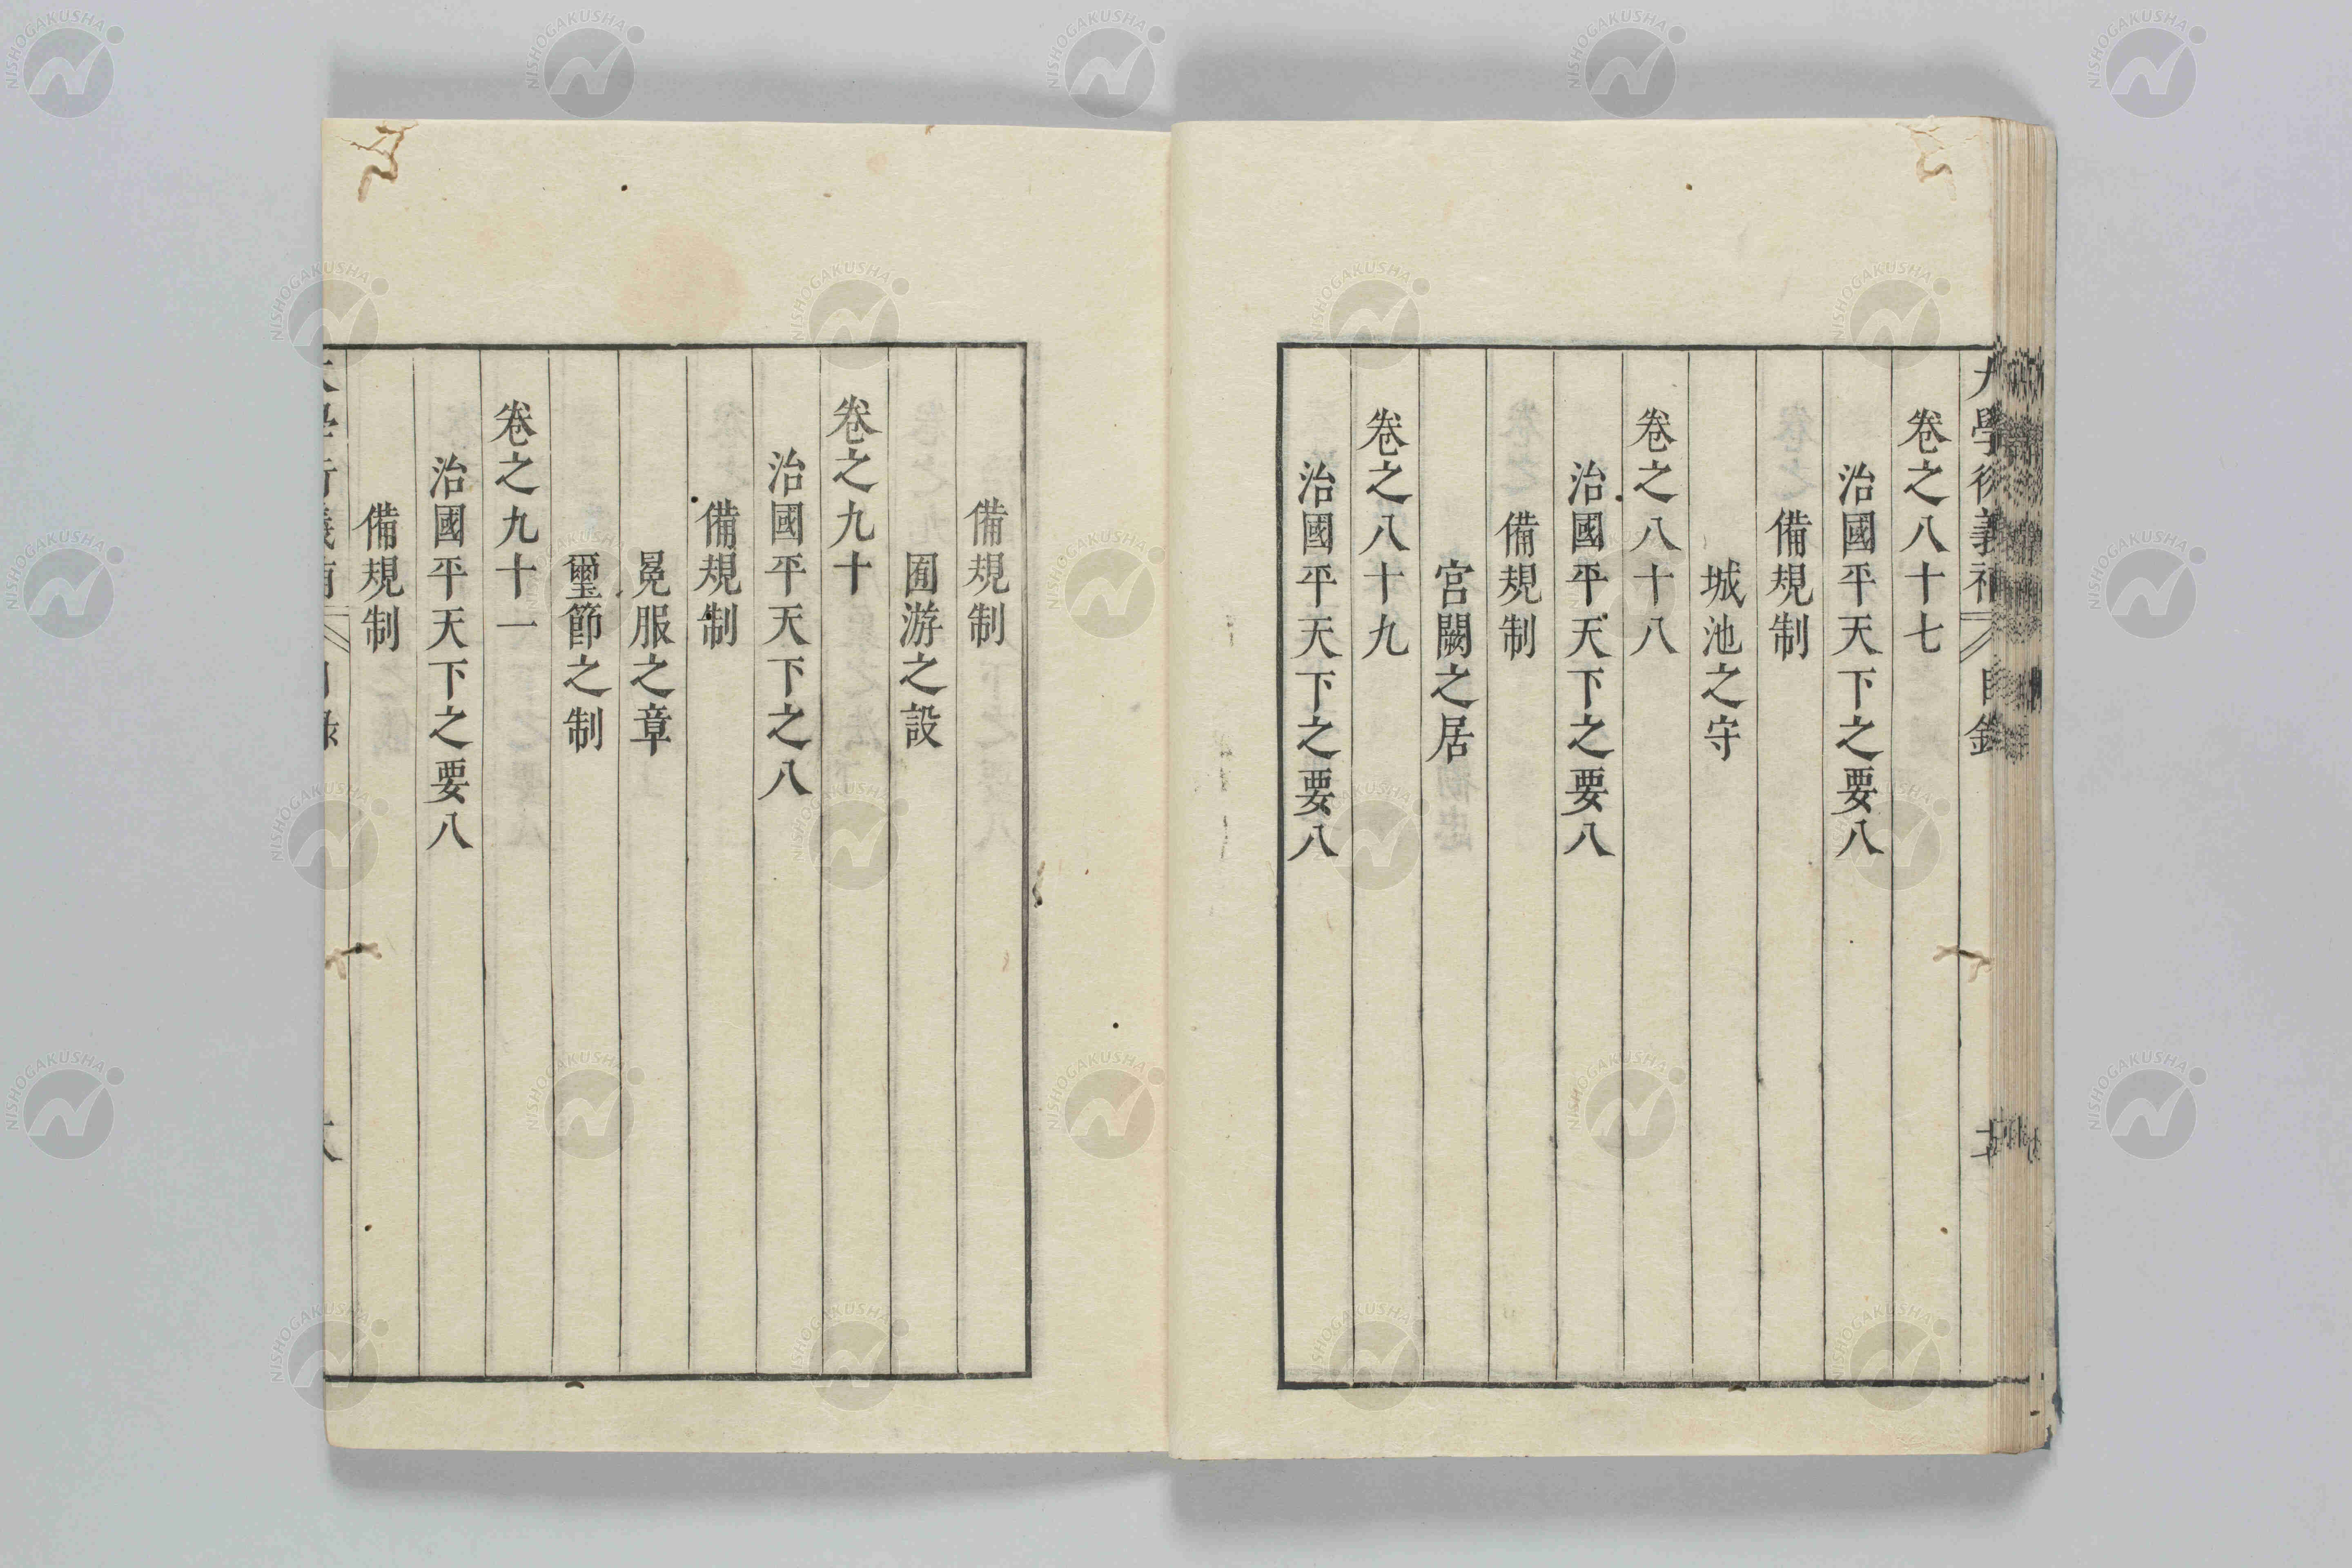 卷之八十七
治國平天下之要八
備規制
城池之守
卷之八十八
治國平天下之要八
備規制
宮闕之居
卷之八十九
治國平天下之要八
備規制
囿游之設
卷之九十
治國平天下之八
備規制
冕服之章
璽節之制
卷之九十一
治國平天下之要八
備規制
NISHOGAKUSHA